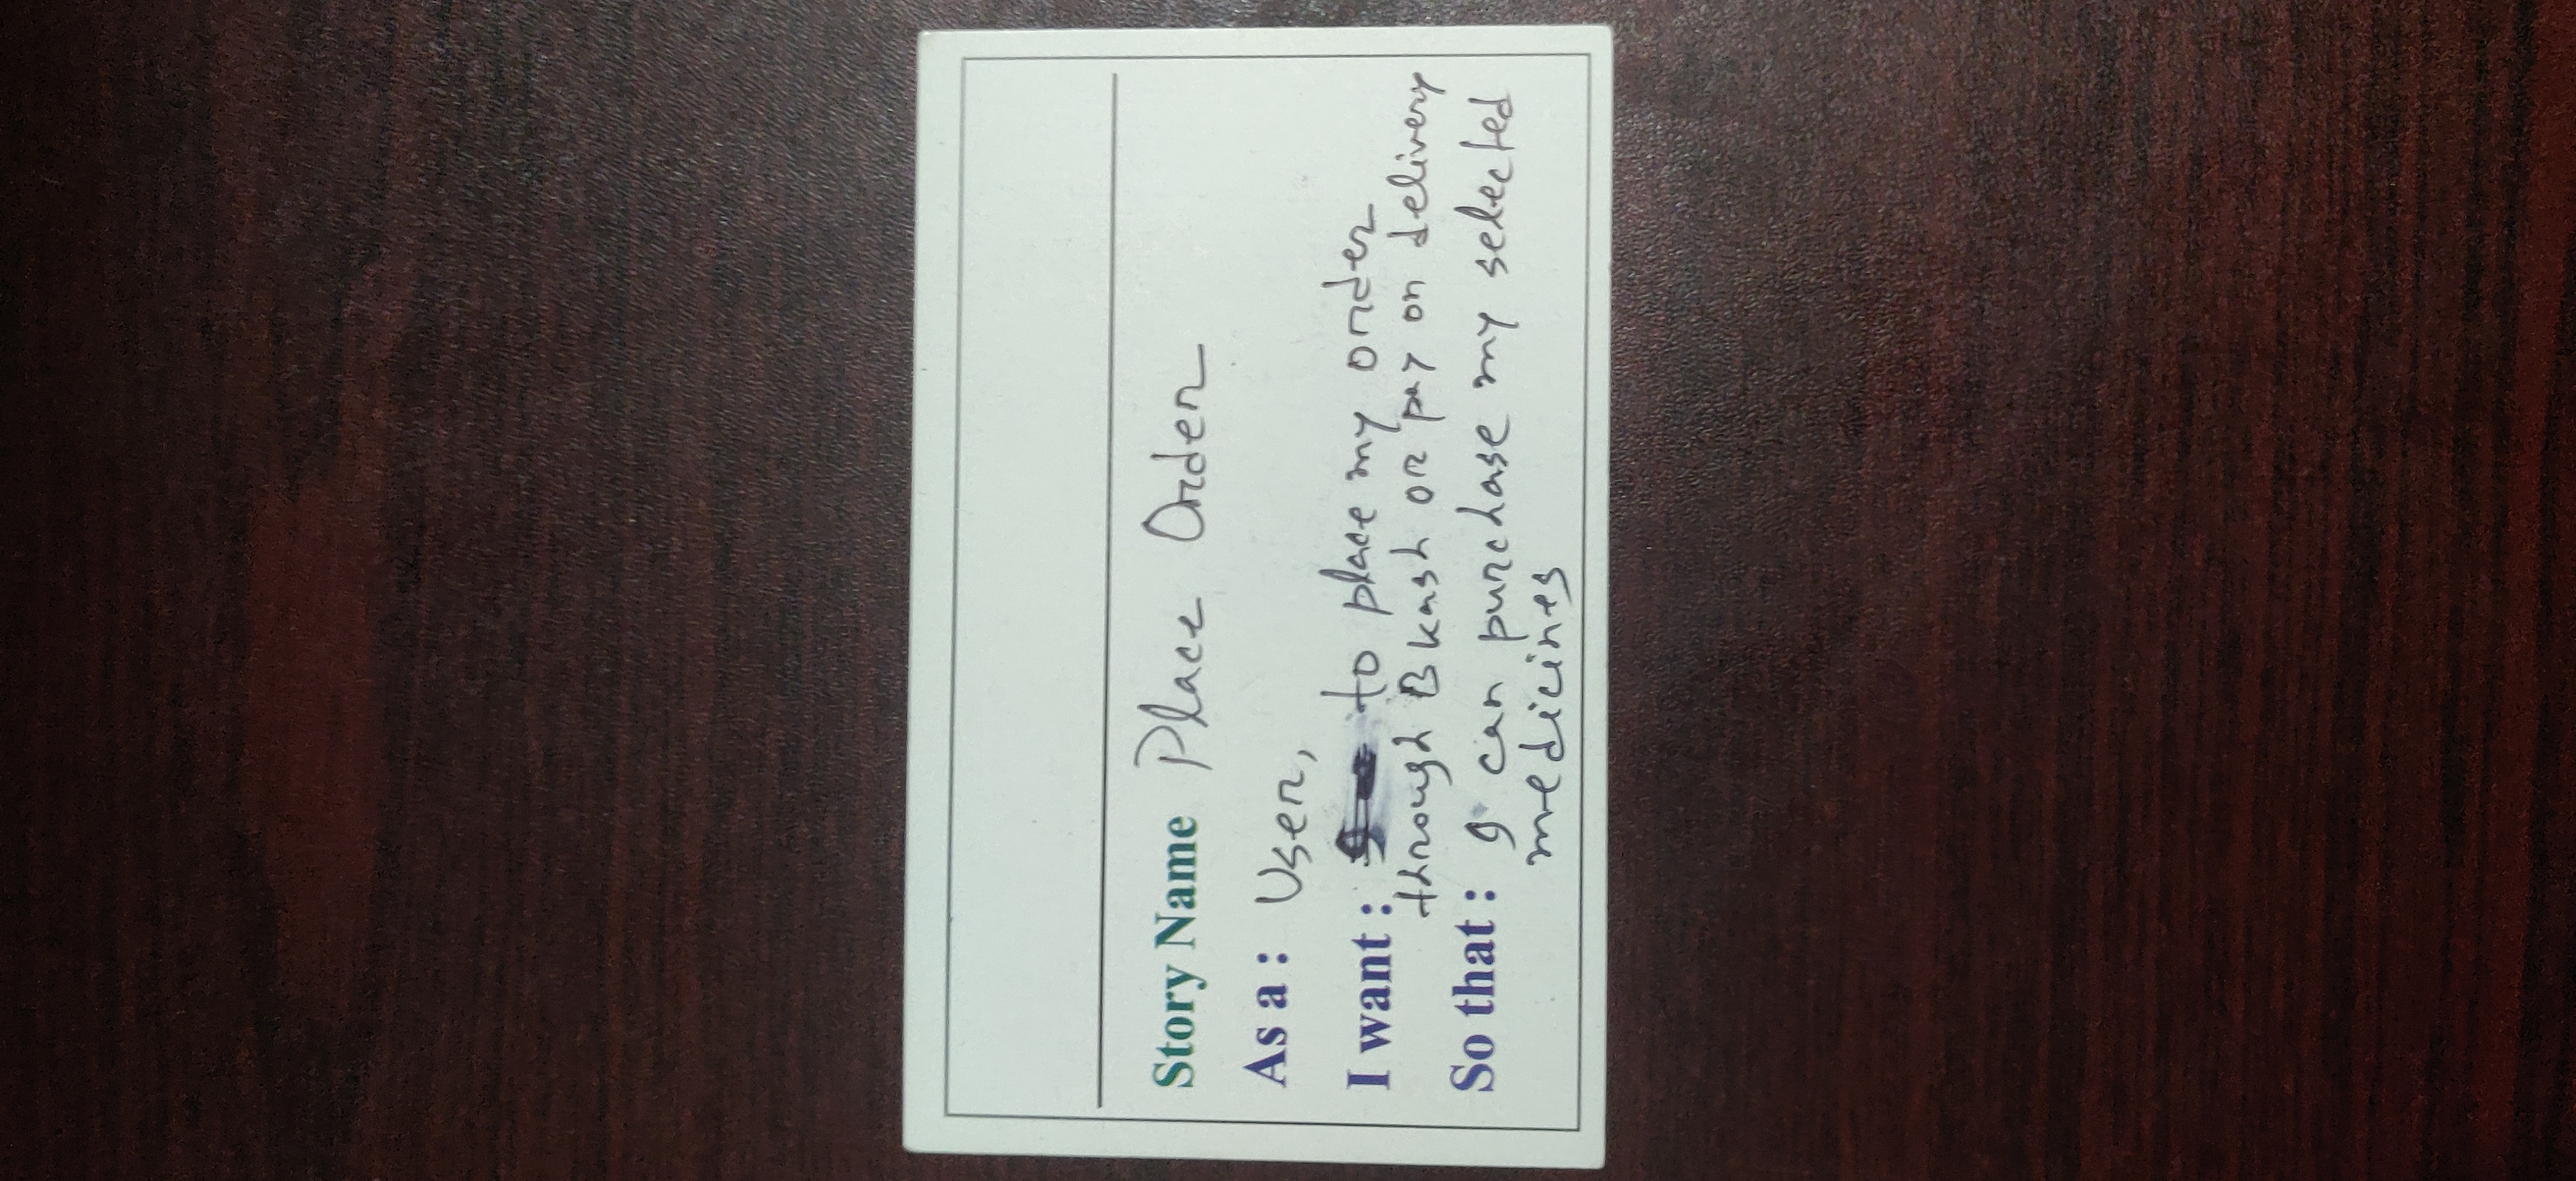 Story Name Place Order
As a : User,
I want : to place my order
through Bkash or pay on delivery
So that : I can purchase my selected
medicines